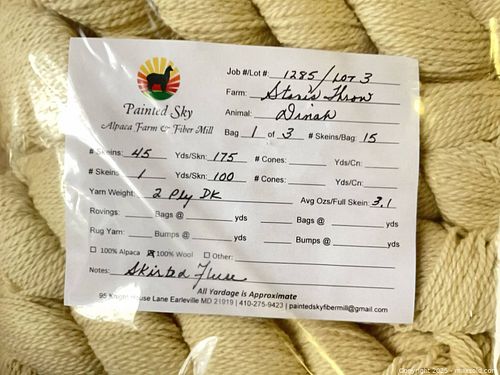 Painted Sky
Alpaca Farm & Fiber Mill
Job #/Lot #: 1285/LOT 3
Farm: Stones Throw
Animal: Dinah
Bag 1 of 3 # Skeins/Bag: 15
# Skeins: 45 Yds/Skn: 175 # Cones: Yds/Cn:
# Skeins 1 Yds/Skn: 100 # Cones: Yds/Cn:
Yarn Weight: 2 Ply DK Avg Ozs/Full Skein: 3.1
Rovings: Bags @ yds Bags @ yds
Rug Yarn: Bumps @ yds Bumps @ yds
100% Alpaca 100% Wool Other:
Notes: Skirted
All Yardage is Approximate
95 Knight House Lane Earleville MD 21919 | 410-275-9423 | paintedskyfibermill@gmail.com
Copyright 2025 - maxsold.com